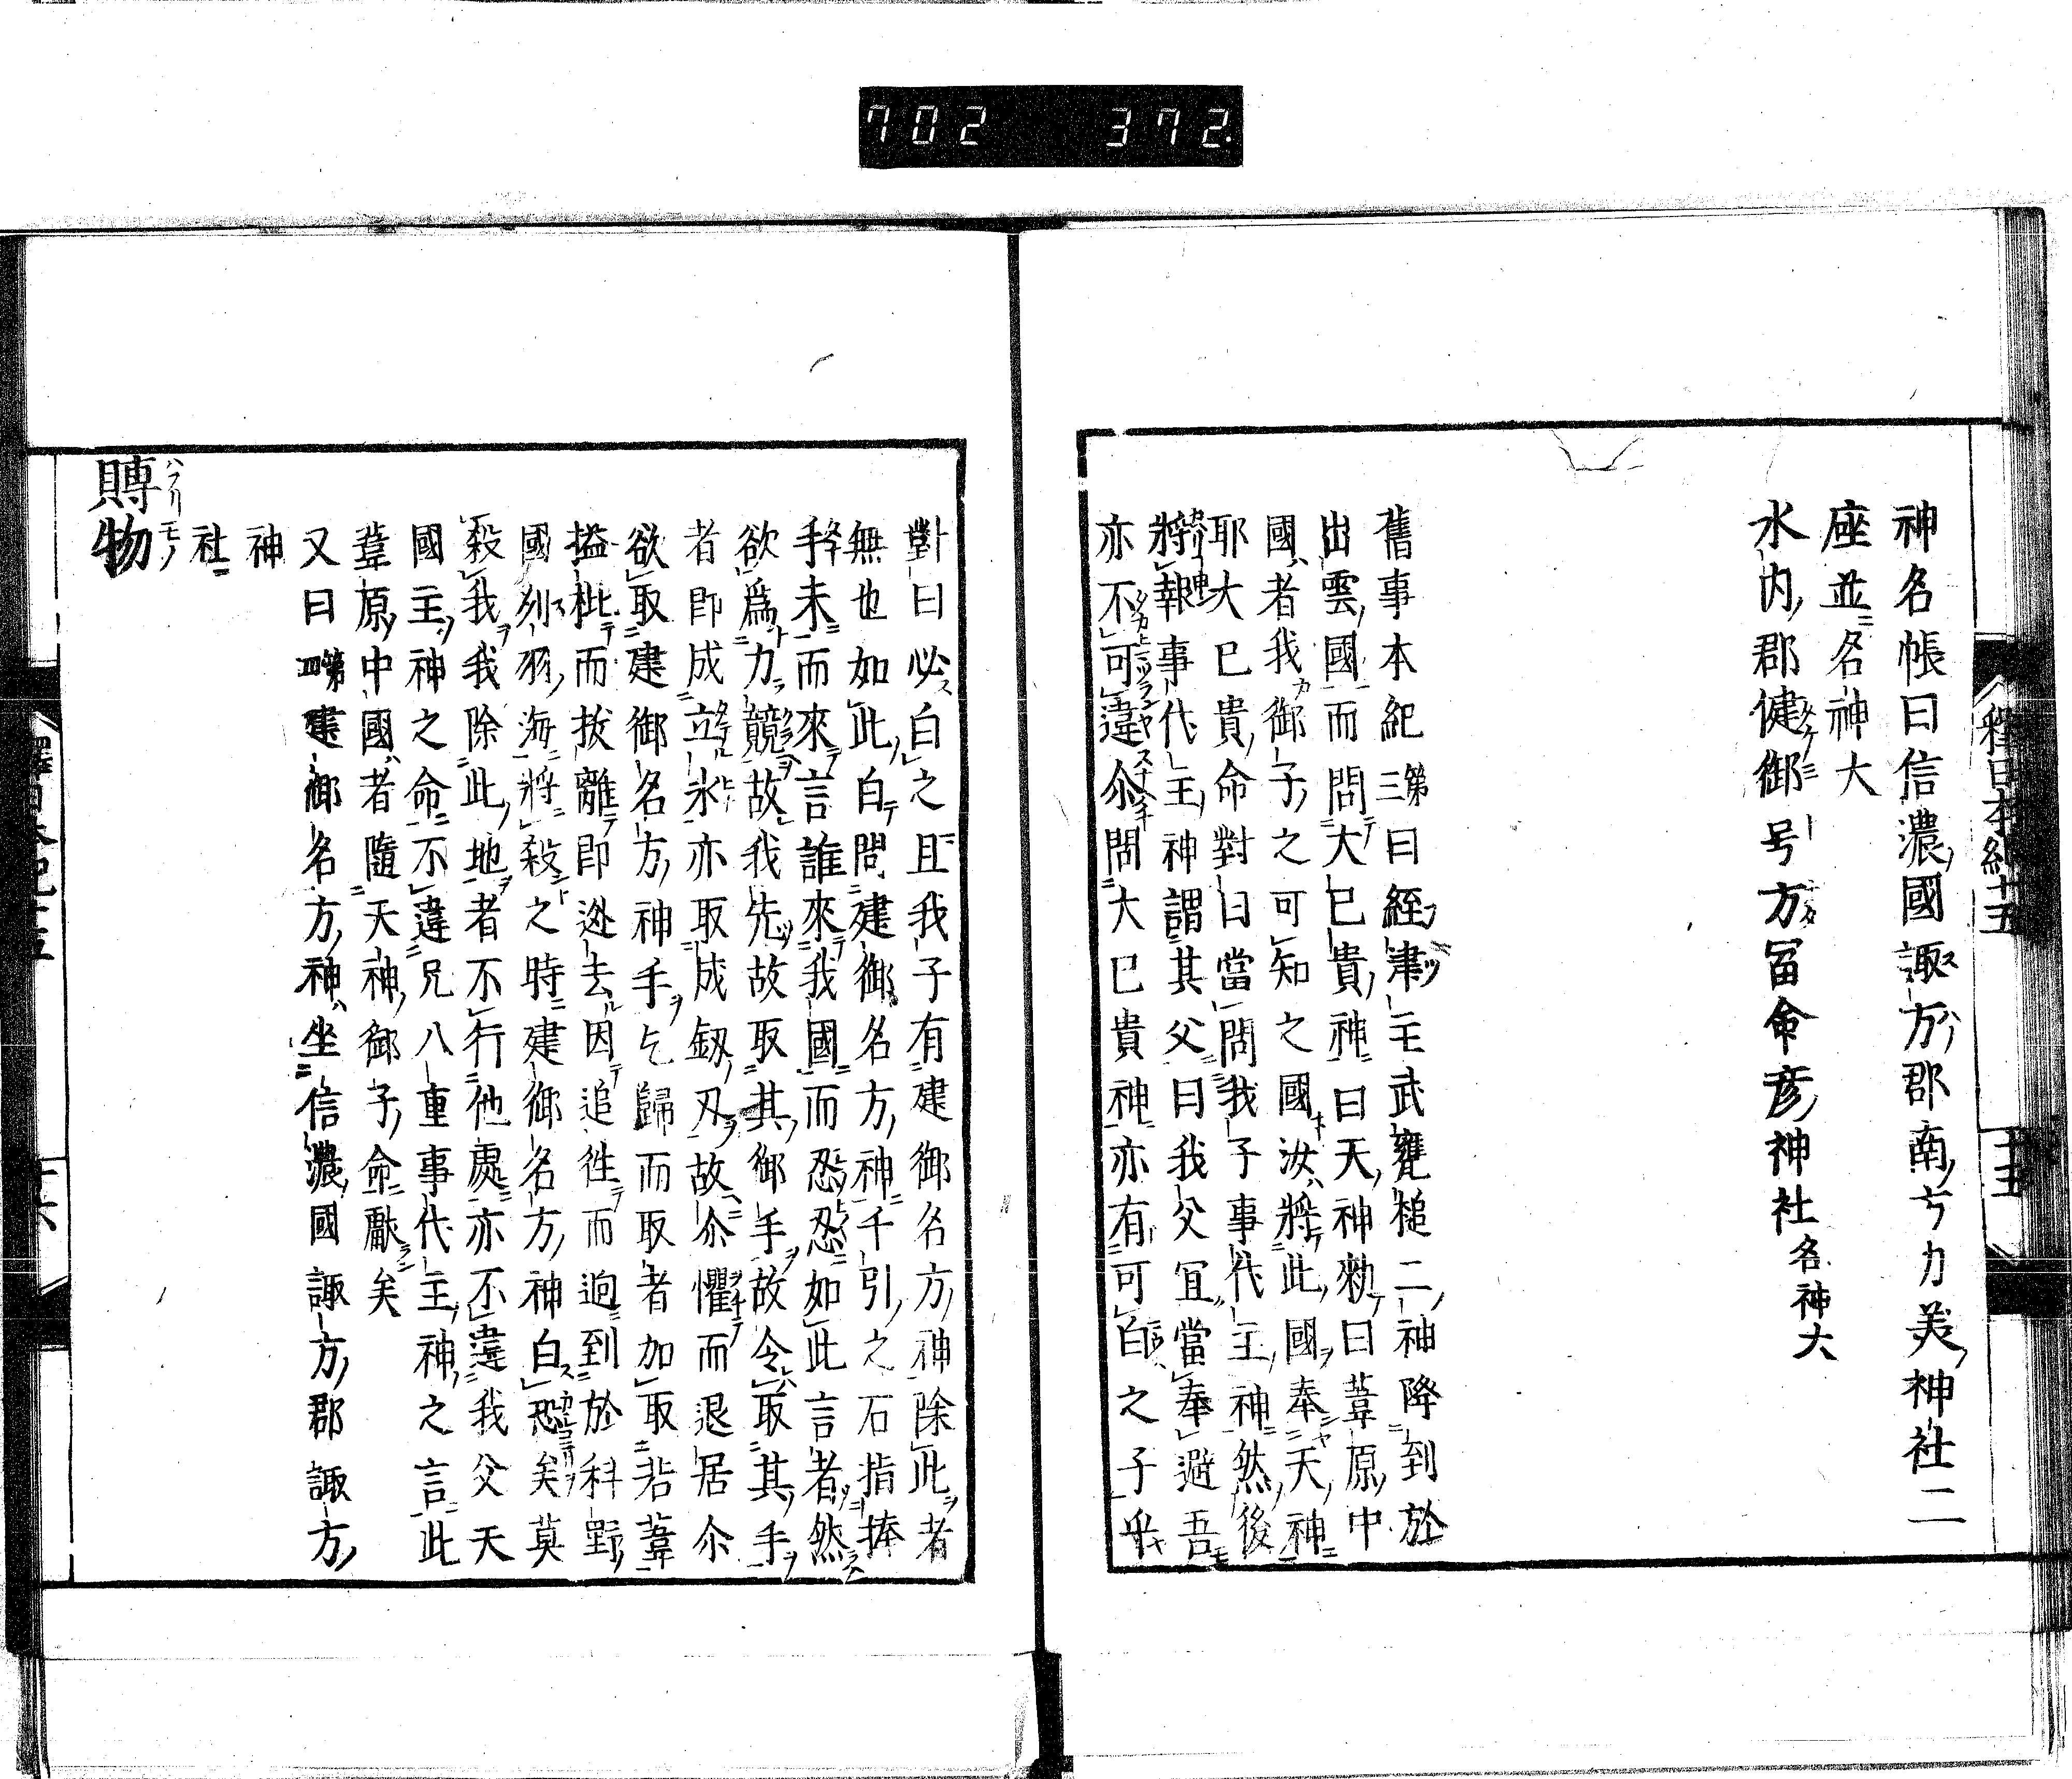 702 372
釋日本紀十五
十五
神名帳曰信濃國諏方郡南方刀美神社二
座並名神大
水内郡健御名方冨命彦神社名神大
舊事本紀第三曰經津主武甕槌二神降到於
出雲國而問大已貴神曰天神勑曰葦原中
國者我御子之可知之國汝將此國奉天神
耶大已貴命對曰當問我子事代主神然後
將報事代主神謂其父曰我父冝當奉避吾
亦不可違尒問大已貴神亦有可白之子乎
對曰必白之且我子有建御名方神除此者
無也如此白問建御名方神千引之石指捧
手末而來言誰來我國而忍忍如此言者然
欲爲力競故我先故取其御手故令取其手
者即成立氷亦取成釼刃故尒懼而退居尒
欲取建御名方神手乞歸而取者加取若葦
搤批而投離即迯去因追徃而迫到於科野
國列羽海將殺之時建御名方神白恐矣莫
殺我我除此地者不行他處亦不違我父天
國主神之命不違兄八重事代主神之言此
葦原中國者隨天神御子命獻矣
又曰第四建御名方神坐信濃國諏方郡諏方
神
社
賻物
釋日本紀十五
十六